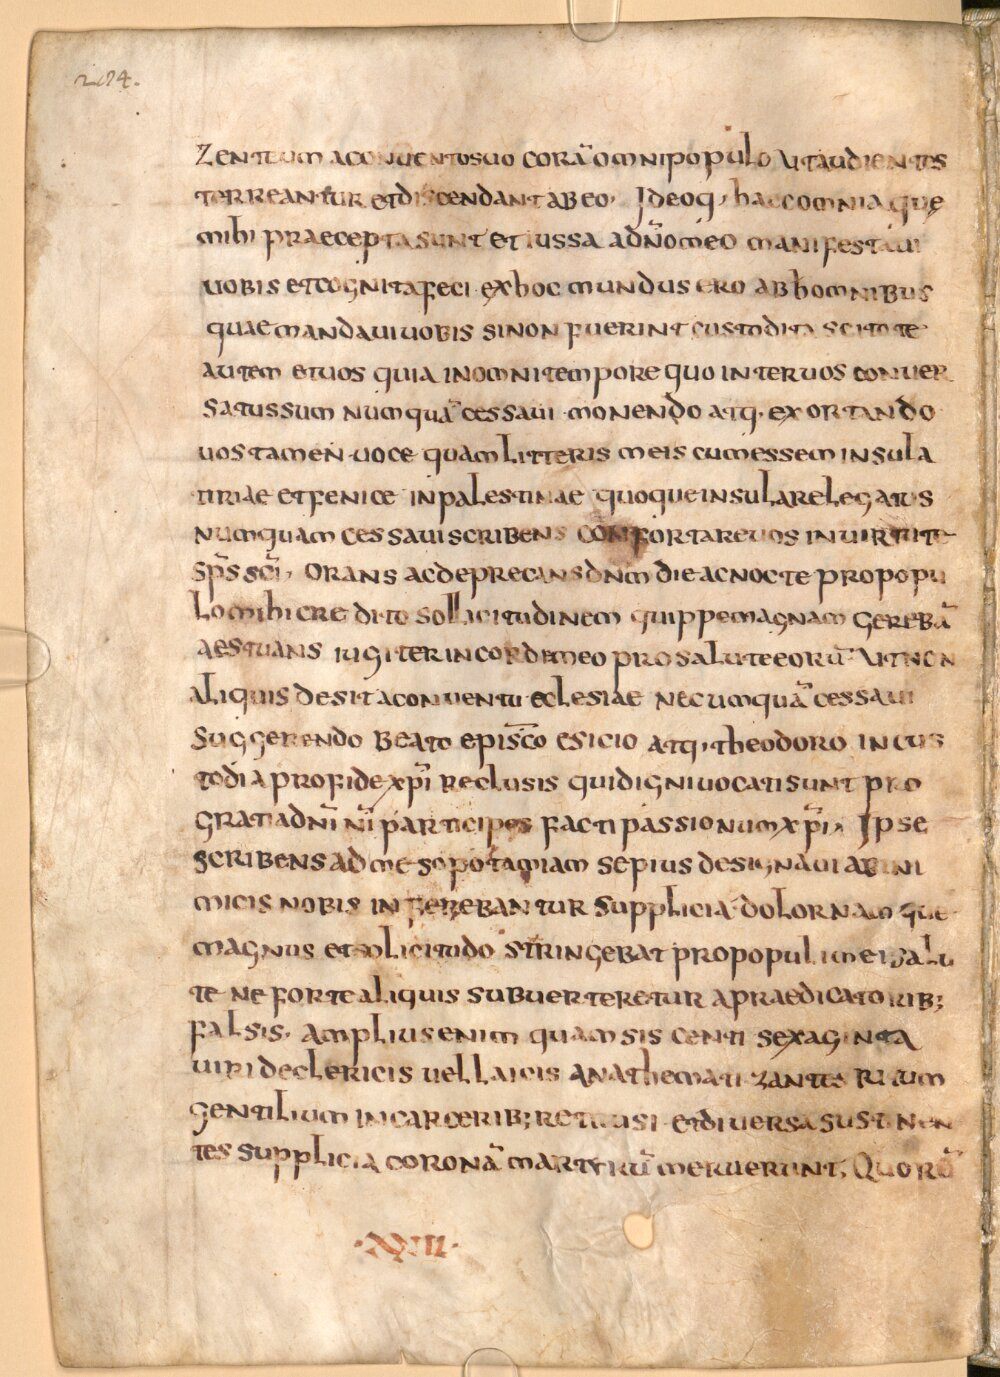 274.
zentium a conuento suo corā omni populo ut audientes
terreantur et discendant ab eo. Ideoq, haec omnia que
mihi praecepta sunt et iussa a dn̄o meo manifestaui
uobis et cognita feci ex hoc mundus ero ab homnibus
quae mandaui uobis si non fuerint custodita scitote
autem et uos quia in omni tempore quo inter uos conuer
satus sum numquā cessaui monendo atq. exortando
uos tamen uoce quam litteris meis cum essem insula
tiriae et fenice in palestinae quoque insula relegatus
numquam cessaui scribens confortare uos in uirtute
sp̄s sc̄i, orans ac deprecans dn̄m die ac nocte pro popu
lo mihi credito sollicitudinem quippe magnam gerebā
aestuans iugiter in corde meo pro salute eorū ut non
aliquis desit a conuentu eclesiae nec umquā cessaui
suggerendo beato episc̄o esicio atq, theodoro in cus
todia pro fide xp̄i reclusis qui digni uocati sunt pro
gratia dn̄i n̄i participes facti passionum xp̄i, Ipse
scribens ad mesopotamiam sepius designaui ab ini
micis nobis inferebantur supplicia dolor nam que
magnus et sollicitudo stringebat pro populi mei salu
te ne forte aliquis subuerteretur a praedicatorib;
falsis. amplius enim quam siscenti sexaginta
uiri de clericis uel laicis anathematizante ritum
gentilium in carcerib; retrusi et diuersa sustinen
tes supplicia coronā martyrū meruerunt, Quorū
·XXVII·